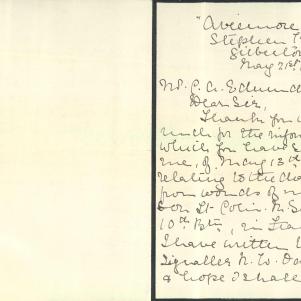 "Aviemore
Stephen T
Gilberton
May 21st
Mr. C. A. Edmunds
Dear Sir,
Thanks for
much for the infor
which you have
me, of May 13th
relating to the
from wounds of m
son Lt Colin. R. S
10th Bttn, in Fra
I have written
Signaller R. W. Da
& hope I shall